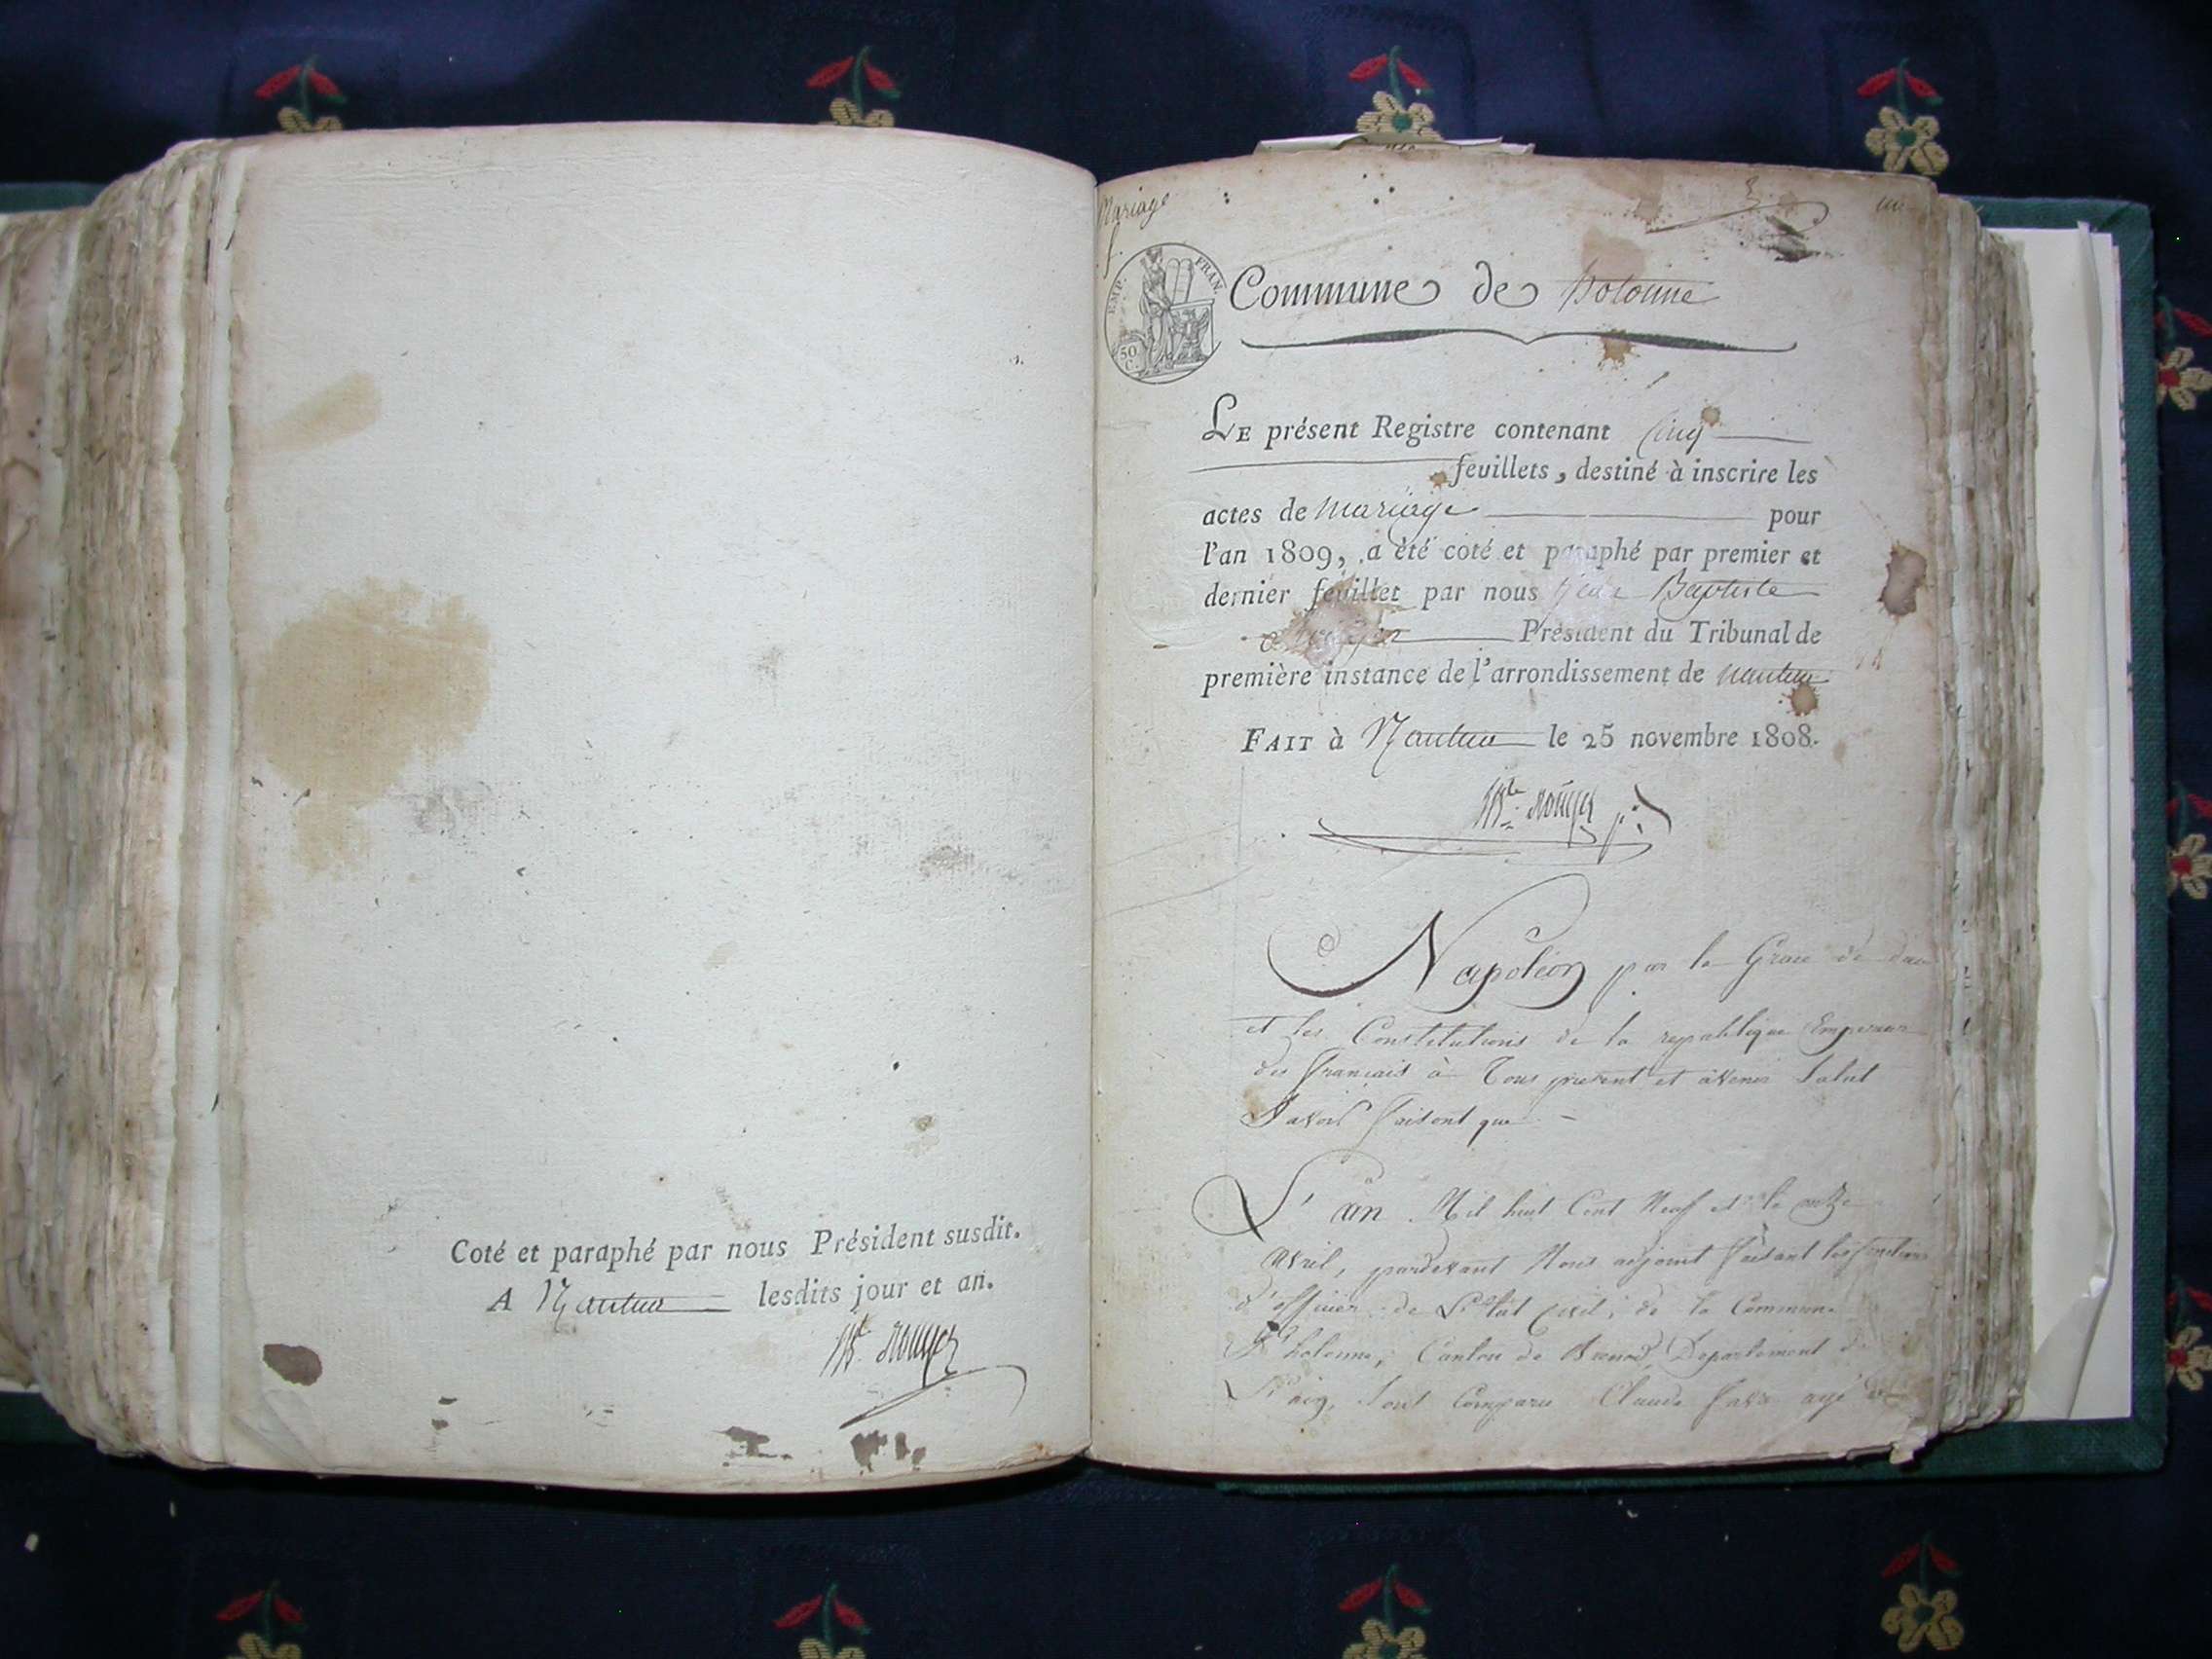 Coté et paraphé par nous Président susdit.
A Nantua lesdits jour et an.
Mariage
EMP. FRAN.
50
C.
Commune de holonne
LE présent Registre contenant Cinq
feuillets, destiné à inscrire les
actes de Mariage pour
l'an 1809, a été coté et paraphé par premier et
dernier feuillet par nous Jean Baptiste
Président du Tribunal de
première instance de l'arrondissement de Nantua
FAIT à Nantua le 25 novembre 1808.
Napoléon par la Grace de dieu
et les Constitutions de la republique Empereur
des francais à Tous present et àvenir Salut
Savoir faisont que
L'an Mil huit Cent Neuf et le onze
avril, pardevant Nous adjoint faisant les fonctions
d'officier de L'Etat Civil, de la Commune
D'holonne, Canton de Brenod, Departement de
L'ain, Sont Comparu Claude favre agé